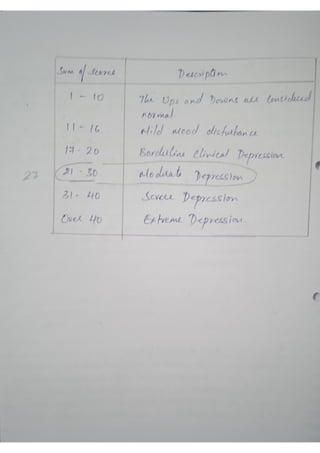 Sum of scores Description
1 - 10 The Ups and Downs are considered
normal
11 - 16 Mild mood disturbance
17 - 20 Borderline Clinical Depression
27 21 - 30 Moderate Depression
31 - 40 Severe Depression
Over 40 Extreme Depression.